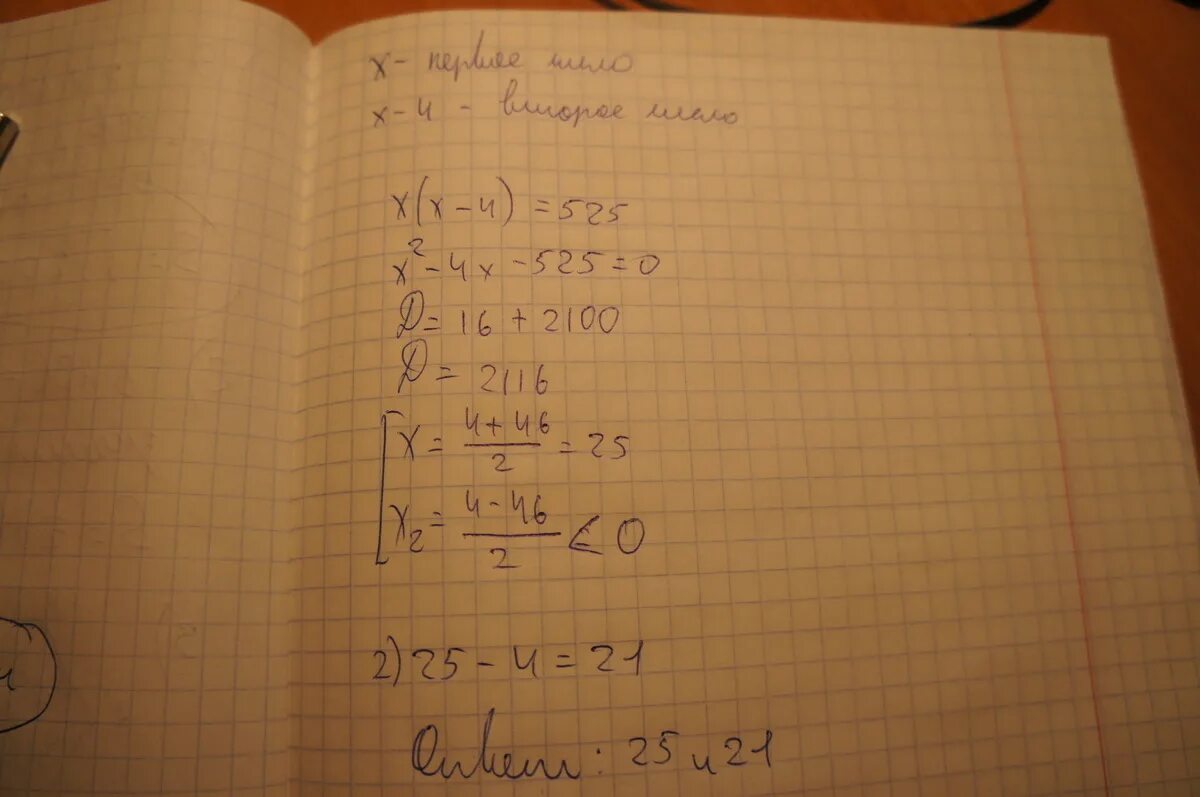 x - первое число
x - 4 - второе число
x(x - 4) = 525
x² - 4x - 525 = 0
D = 16 + 2100
D = 2116
x = (4 + 46)/2 = 25
x₂ = (4 - 46)/2 < 0
2) 25 - 4 = 21
Ответ: 25 и 21